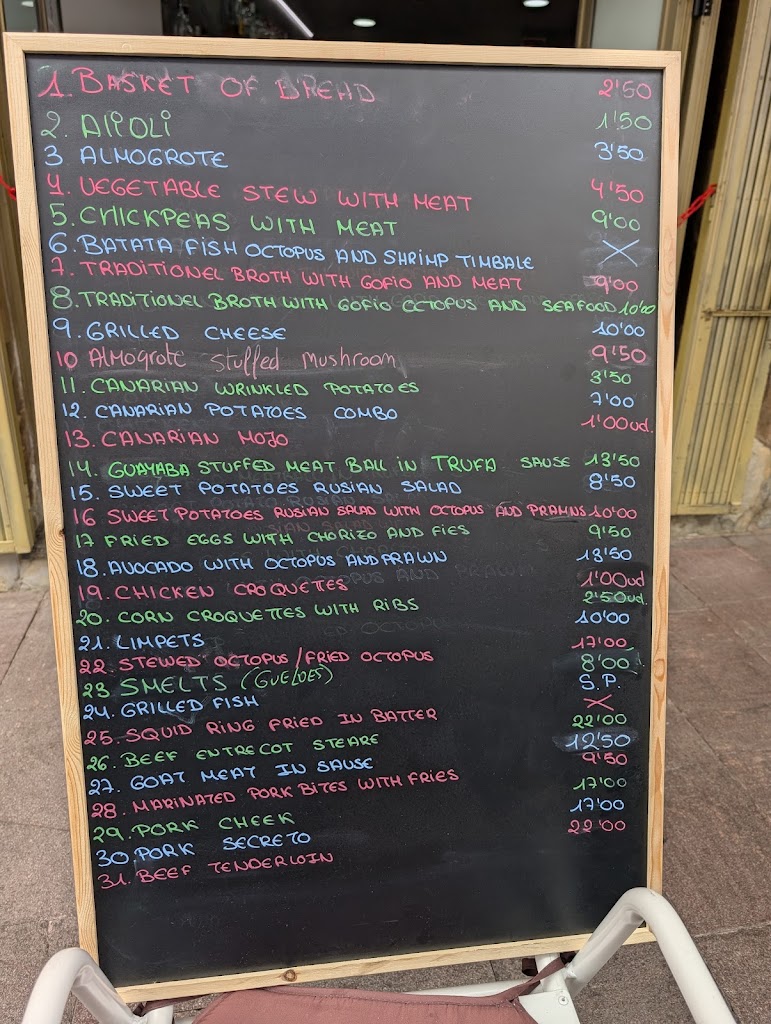 1. BASKET OF BREAD 2'50
2. Alioli 1'50
3. ALMOGROTE 3'50
4. VEGETABLE STEW WITH MEAT 4'50
5. CHICKPEAS WITH MEAT 9'00
6. BATATA FISH OCTOPUS AND SHRIMP TIMBALE X
7. TRADITIONEL BROTH WITH GOFIO AND MEAT 9'00
8. TRADITIONEL BROTH WITH GOFIO OCTOPUS AND SEAFOOD 10'00
9. GRILLED CHEESE 10'00
10 Almogrote Stuffed Mushroom 9'50
11. CANARIAN WRINKLED POTATOES 3'50
12. CANARIAN POTATOES COMBO 7'00
13. CANARIAN MOJO 1'00ud.
14. GUAYABA STUFFED MEAT BALL in TRUFA SAUSE 13'50
15. SWEET POTATOES RUSIAN SALAD 8'50
16 SWEET POTATOES RUSIAN SALAD WITH OCTOPUS AND PRAWNS 10'00
17 FRIED EGGS WITH CHORIZO AND FIES 9'50
18. AVOCADO WITH OCTOPUS AND PRAWN 13'50
19. CHICKEN CROQUETES 1'00ud
20. CORN CROQUETTES WITH RIBS 2'50ud.
21. LIMPETS 10'00
22. STEWED OCTOPUS / FRIED OCTOPUS 17'00
23 SMELTS (GUELDES) 8'00
24. GRILLED FISH S.P.
25. SQUID RING FRIED IN BATTER X
26. BEEF ENTRECOT STEARE 22'00
27. GOAT MEAT IN SAUSE 12'50
28. MARINATED PORK BITES WITH FRIES 9'50
29. PORK CHEEK 17'00
30 PORK SECRETO 17'00
31. BEEF TENDERLOIN 22'00